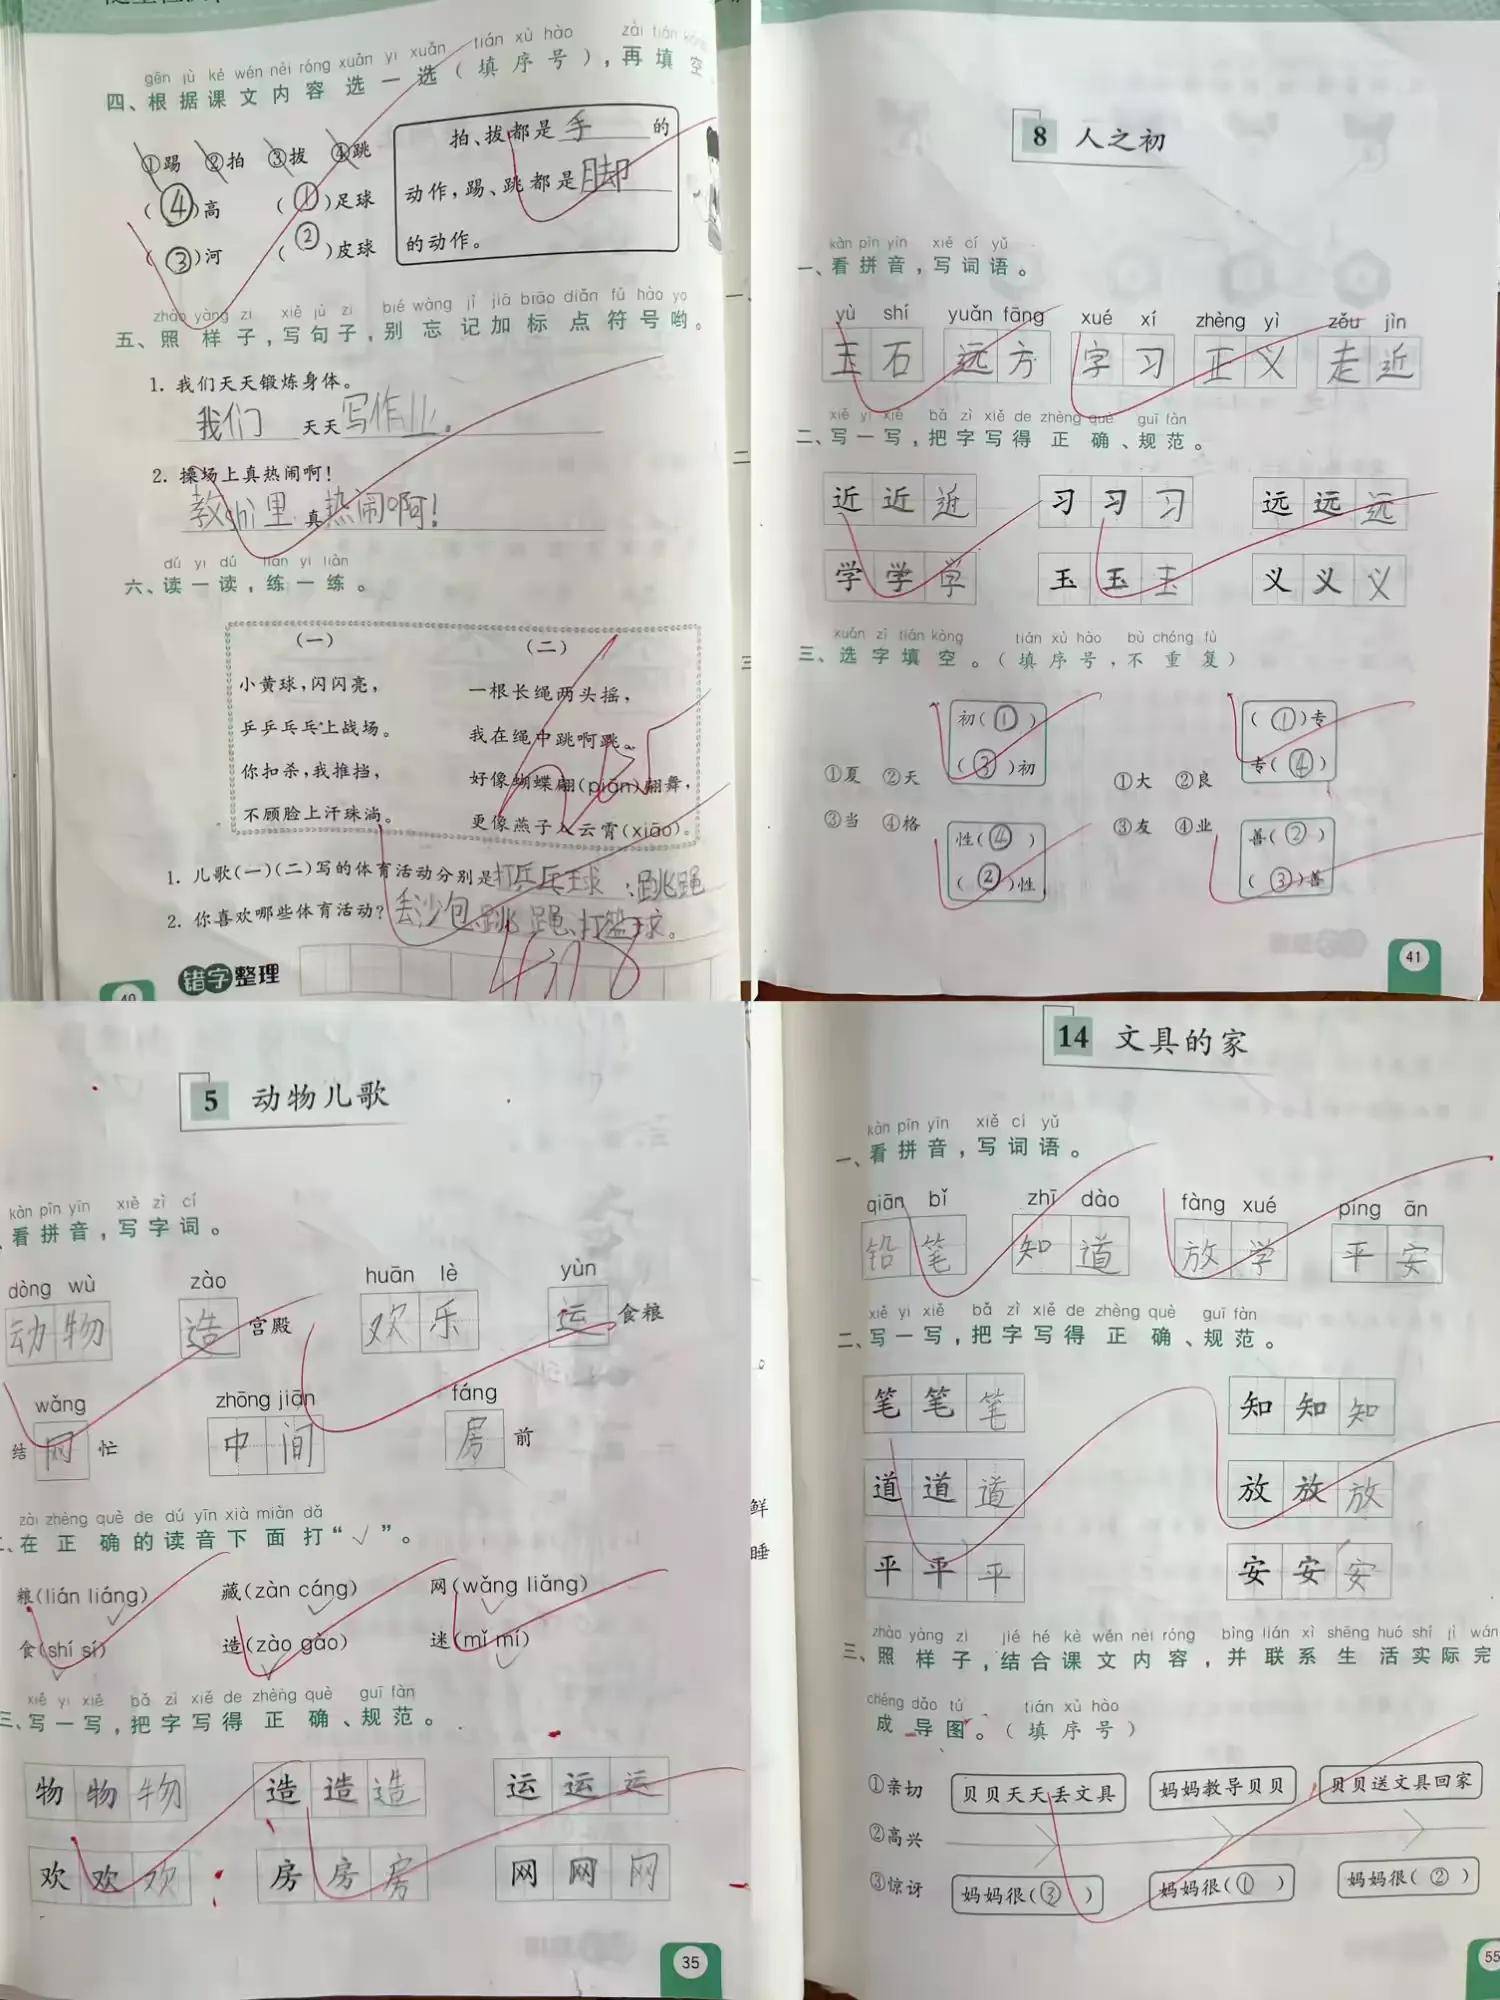 gēn jù kè wén nèi róng xuǎn yi xuǎn tián xù hào zài tián
四、根据课文内容选一选(填序号),再填空
①踢 ②拍 ③拔 ④跳
(④)高 (①)足球
(③)河 (②)皮球
拍、拔都是手的
动作,踢、跳都是脚
的动作。
zhào yàng zi xiě jù zi bié wàng jì jiā biāo diǎn fú hào yo
五、照样子,写句子,别忘记加标点符号哟。
1. 我们天天锻炼身体。
我们天天写作业。
2. 操场上真热闹啊!
教shì里真热闹啊!
dú yi dú liàn yi liàn
六、读一读,练一练。
(一)
小黄球,闪闪亮,
乒乒乓乓上战场。
你扣杀,我推挡,
不顾脸上汗珠淌。
(二)
一根长绳两头摇,
我在绳中跳啊跳。
好像蝴蝶翩(piān)翩舞,
更像燕子入云霄(xiāo)。
1. 儿歌(一)(二)写的体育活动分别是打乒乓球、跳绳
2. 你喜欢哪些体育活动?丢沙包、跳绳、打篮球。
错字整理
40
8 人之初
kàn pīn yīn xiě cí yǔ
一、看拼音,写词语。
yù shí yuǎn fāng xué xí zhèng yì zǒu jìn
玉石 远方 学习 正义 走近
xiě yi xiě bǎ zì xiě de zhèng què guī fàn
二、写一写,把字写得正确、规范。
近近近 习习习 远远远
学学学 玉玉玉 义义义
xuǎn zì tián kòng tián xù hào bù chóng fù
三、选字填空。(填序号,不重复)
初(①) (①)专
(③)初 专(④)
①夏 ②天 ①大 ②良
③当 ④格 ③友 ④业
性(④) 善(②)
(②)性 (③)善
41
5 动物儿歌
kàn pīn yīn xiě zì cí
看拼音,写字词。
dòng wù zào huān lè yùn
动物 造宫殿 欢乐 运食粮
wǎng zhōng jiān fáng
结网忙 中间 房前
zài zhèng què de dú yīn xià miàn dǎ
二、在正确的读音下面打“√”。
粮(lián liáng) 藏(zàn cáng) 网(wǎng liǎng)
食(shí sí) 造(zào gào) 迷(mǐ mí)
xiě yi xiě bǎ zì xiě de zhèng què guī fàn
三、写一写,把字写得正确、规范。
物物物 造造造 运运运
欢欢欢 房房房 网网网
35
鲜
睡
14 文具的家
kàn pīn yīn xiě cí yǔ
一、看拼音,写词语。
qiān bǐ zhī dào fàng xué píng ān
铅笔 知道 放学 平安
xiě yi xiě bǎ zì xiě de zhèng què guī fàn
二、写一写,把字写得正确、规范。
笔笔笔 知知知
道道道 放放放
平平平 安安安
zhào yàng zi jié hé kè wén nèi róng bìng lián xì shēng huó shí jì wán
三、照样子,结合课文内容,并联系生活实际完
chéng dǎo tú tián xù hào
成导图。(填序号)
①亲切 贝贝天天丢文具 妈妈教导贝贝 贝贝送文具回家
②高兴
③惊讶 妈妈很(③) 妈妈很(①) 妈妈很(②)
55